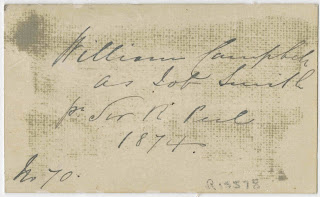 William Campbell
as Job Smith
pr Sir R Peel
1874.
No 70.
R.5578